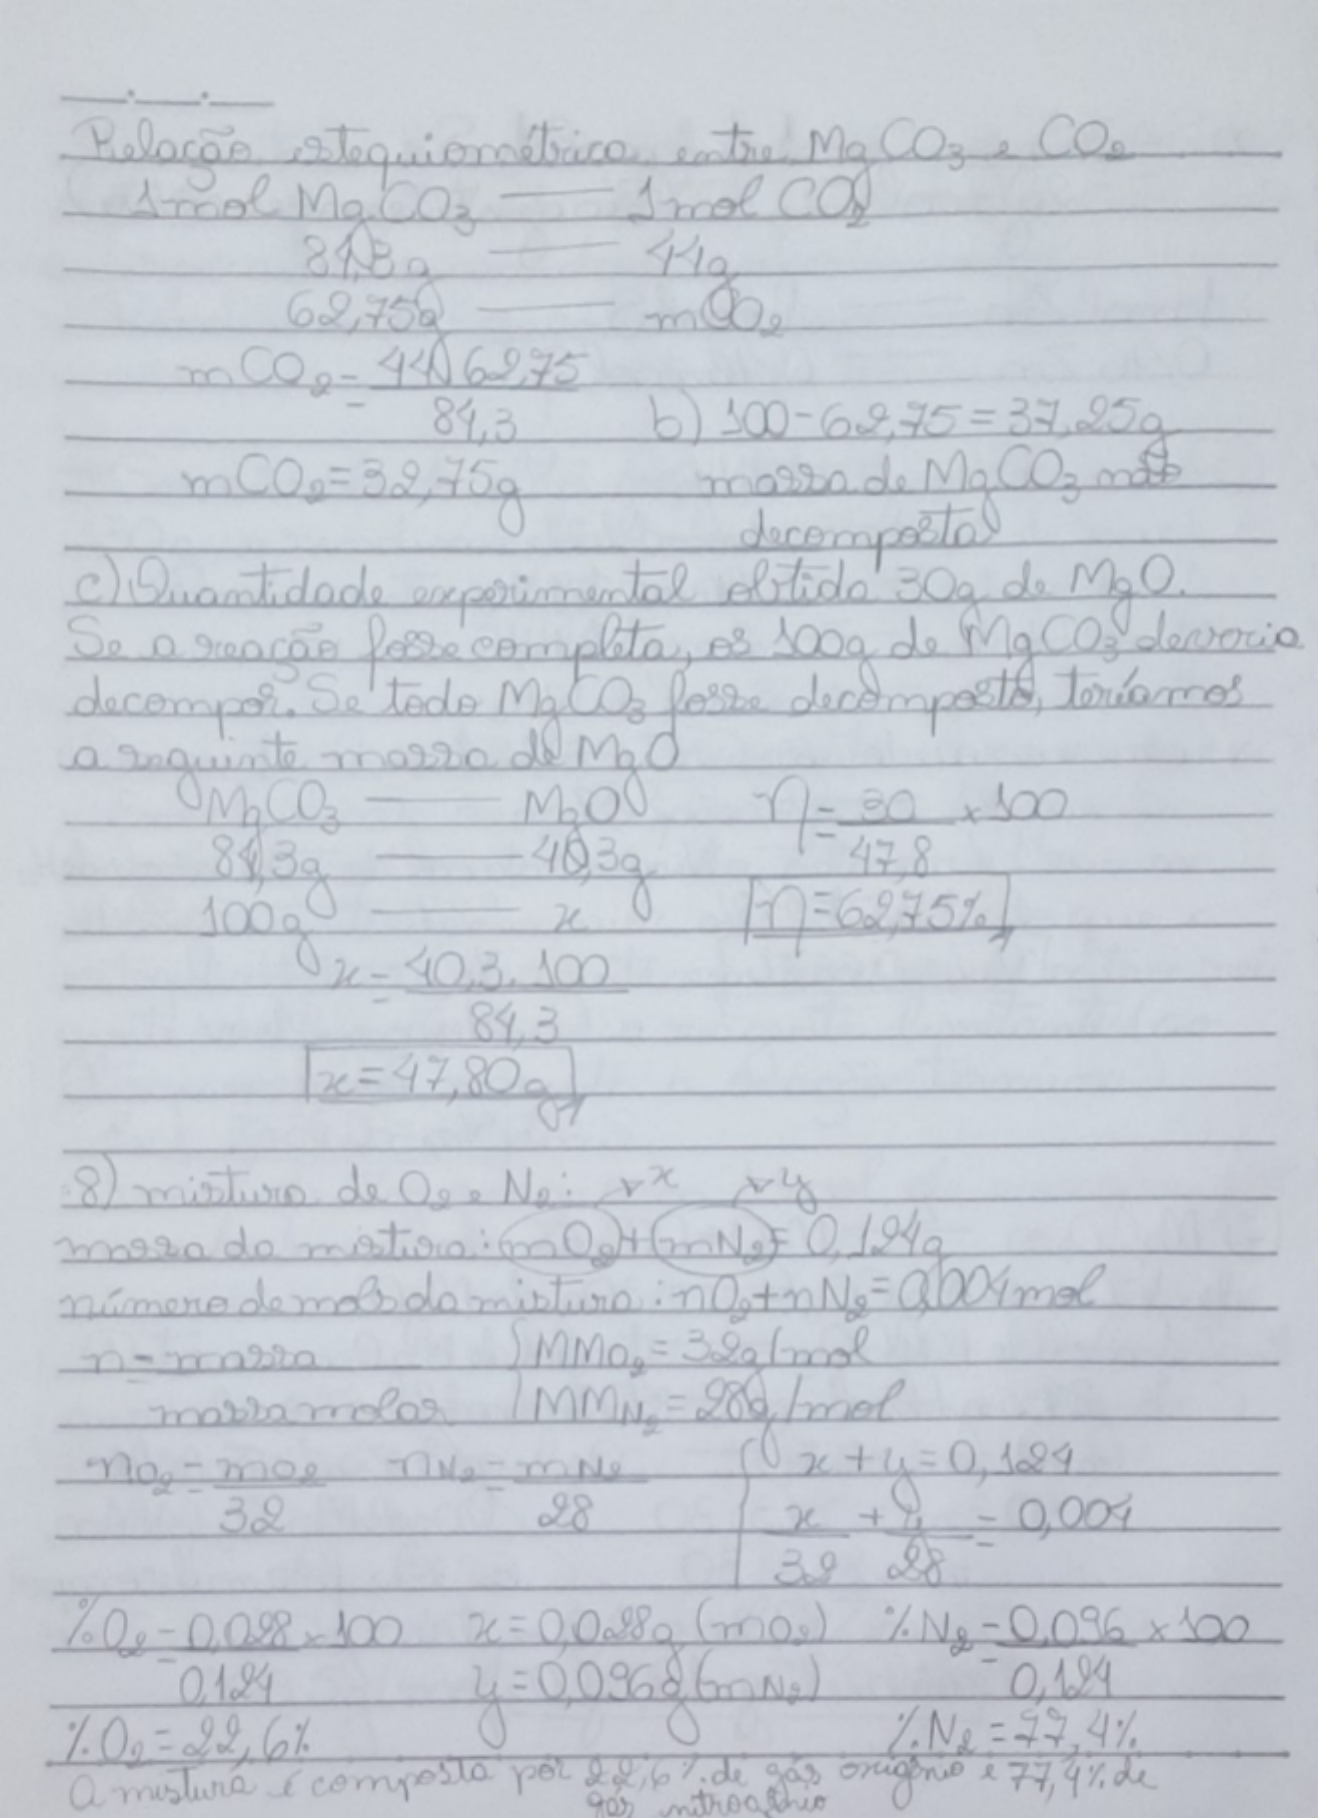 Relação estequiométrica entre MgCO3 e CO2
1mol MgCO3 —— 1mol CO2
84,3g —— 44g
62,75g —— mCO2
mCO2 = 44.62,75
84,3 b) 100-62,75=37,25g
mCO2=32,75g massa de MgCO3 não
decomposta
c) Quantidade experimental obtida 30g de MgO.
Se a reação fosse completa, os 100g de MgCO3 deveria
decompor. Se todo MgCO3 fosse decomposto, teríamos
a seguinte massa de MgO
MgCO3 —— MgO η = 30 x 100
84,3g —— 40,3g 47,8
100g —— x η=62,75%
x = 40,3.100
84,3
x=47,80g
8) mistura de O2 e N2: x y
massa da mistura: mO2 + mN2 = 0,124g
número de mols da mistura: nO2+nN2=0,004mol
n = massa MMO2=32g/mol
massa molar MMN2=28g/mol
nO2 = mO2 nN2 = mN2 x+y=0,124
32 28 x + y = 0,004
32 28
%O2 = 0,028 x 100 x=0,028g (mO2) %N2 = 0,096 x 100
0,124 y=0,096g (mN2) 0,124
%O2=22,6% %N2=77,4%
A mistura é composta por 22,6% de gás oxigênio e 77,4% de
gás nitrogênio